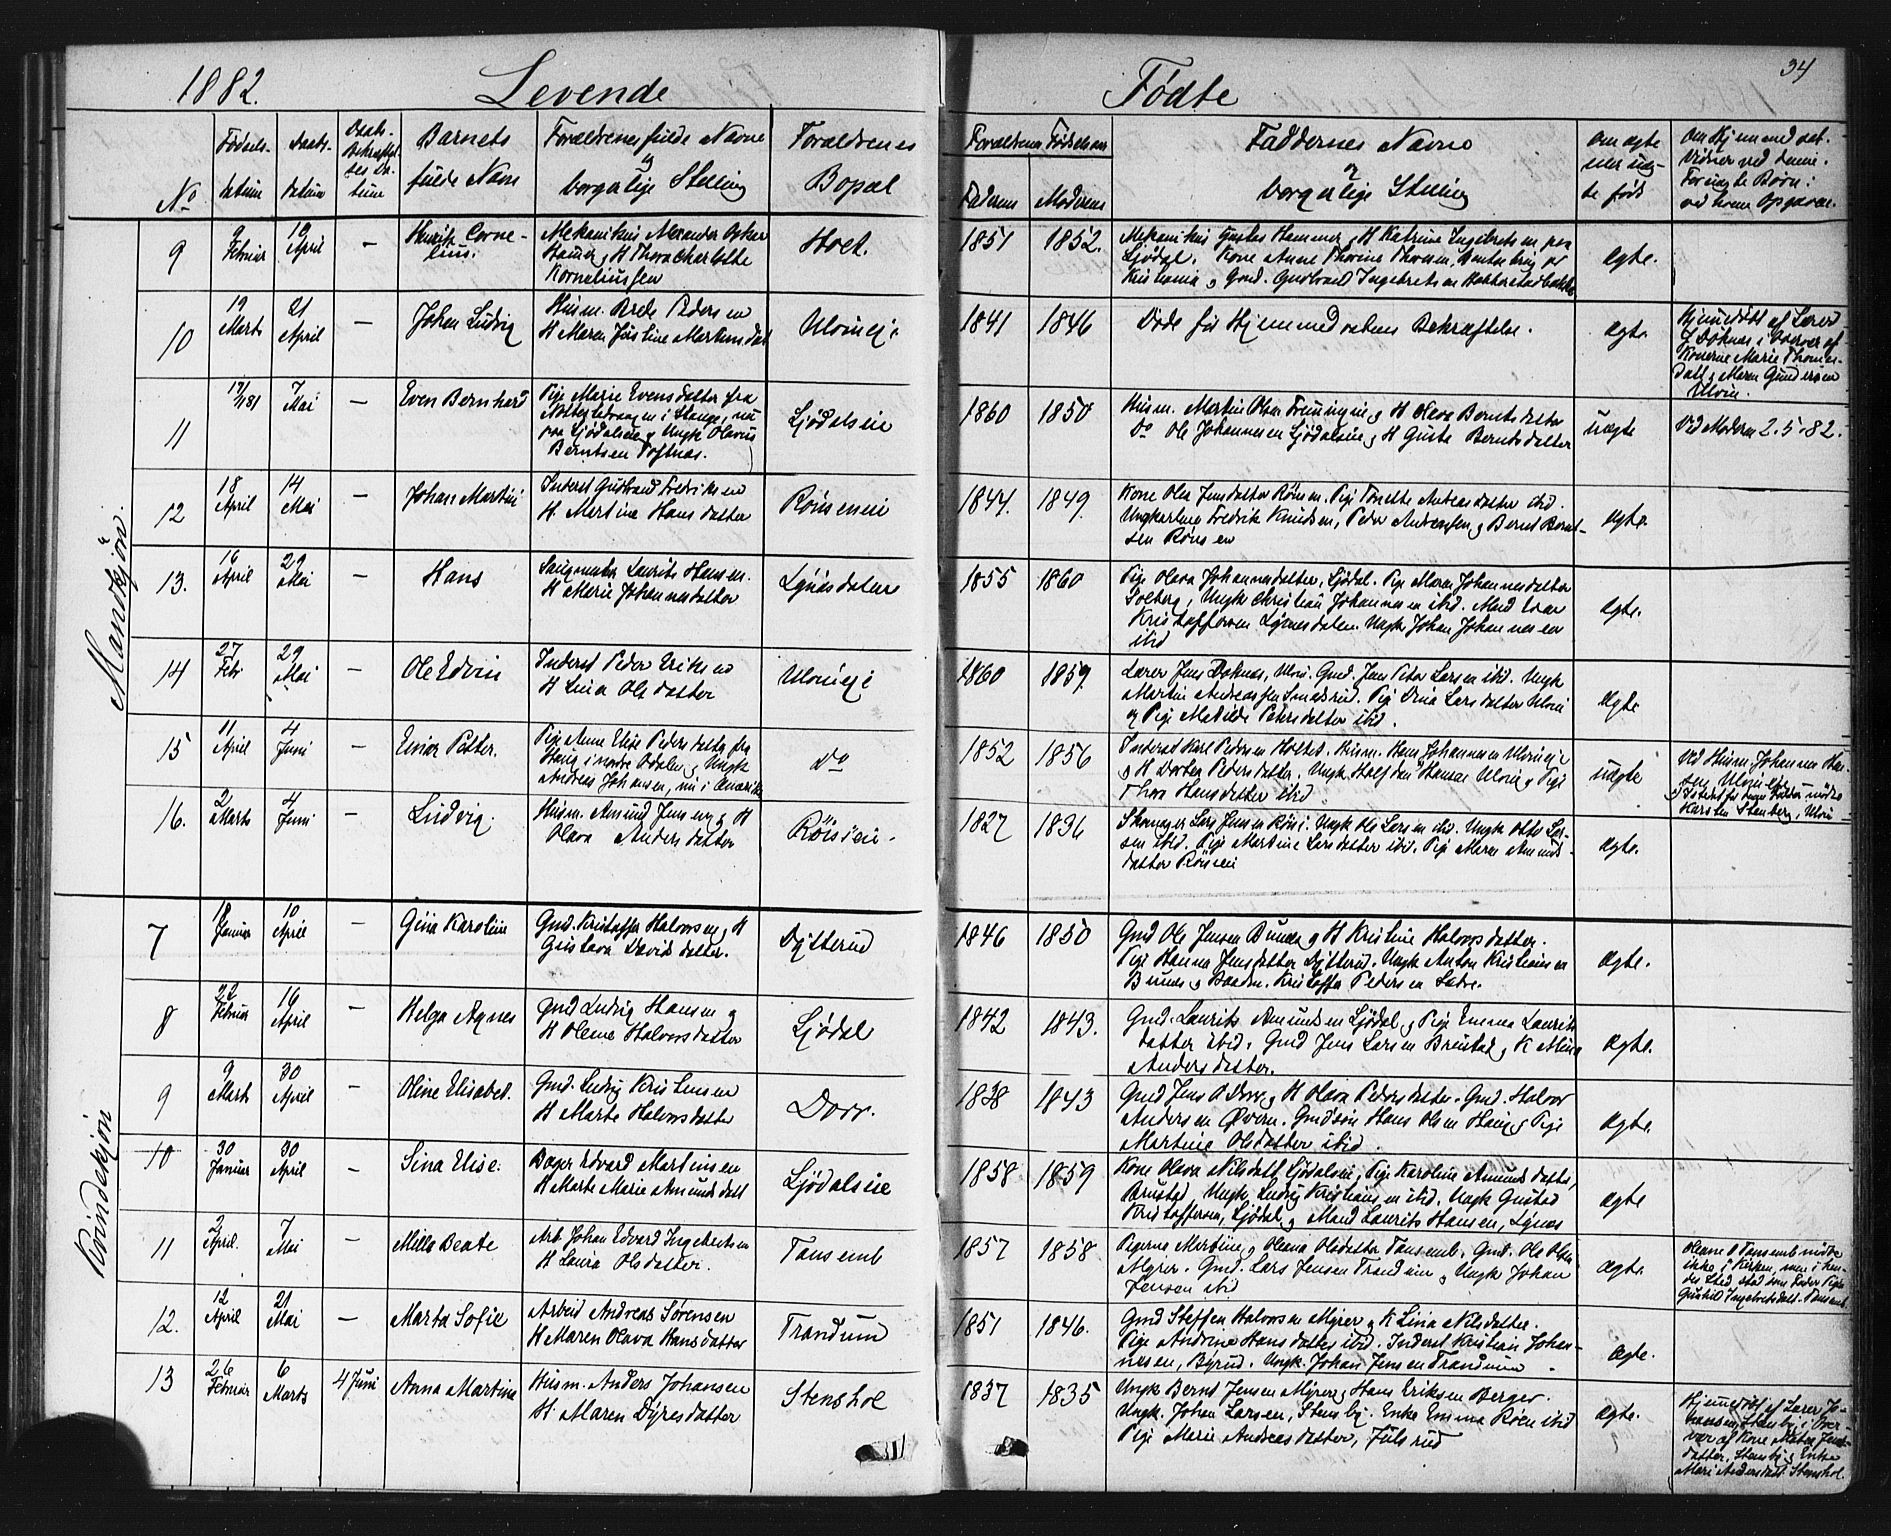 1882.
Levende
Fødte
34
No
Fødsels-
datum
Daabs-
datum
Daabs-
Bekræftel-
ses Da-
tum
Barnets
fulde Navn
Forældrenes fulde Navne
og
borgerlige Stilling
Forældrenes
Bopæl
Forældrenes Fødselsaar
Faderens
Moderens
Faddernes Navne
og
borgerlige Stilling
Om ægte
eller uæg-
te født
Om Hjemmedøbt.
Vidner ved denne.
For uægte Børn:
ved hvem Opgaven.
Mandkjøn.
9
9
Februar
10
April
—
Henrik Corne-
lius.
Mekanikus Alexander Oskar
Hamer, og H Thora Charlotte
Korneliussen
Hoel.
1851
1852.
Mekanikus Gustav Hammer og H Katrine Ingebretsen paa
Ljødal. Kone Anne Thorine Thoresen,
Kristiania og Gmd. Gudbrand Ingebretsen
ægte.
10
19
Marts
21
April
—
Johan Ludvig
Husm. Brede Pedersen
H Maren Justine Martinusdat
Ulvineje
1841
1846
Døde før Hjemmedaabens Bekræftelse.
ægte
Hjemmedøbt af Lærer
J Døknæs i Overvær af
Konerne Marie Thomas-
datt og Maren Gundersen
Ulvin.
11
12/1881
7
Mai
—
Even Bernhard
Pige Marie Evensdatter fra
i Stange, nu
paa Ljødalseie og Ungk Olavus
Berntsen Tøftnæs.
Ljødalseie
1860
1850
Husm. Martin Olsen og H Olava Berntsdatter
Do Ole Johannesen Ljødalseie og H Gusta Berntsdatter
uægte
Ved Moderen 2.5.82.
12
18
April
14
Mai
—
Johan Martin
Inderst Gudbrand Fredriksen
H. Martine Hansdatter
Rønseneie
1844.
1849.
Kone Olea Jensdatter Rønsen. Pige Tonette Andreasdatter ibid.
Ungkarlene Fredrik Knudsen, Peder Andersen, og Bernt Bernt-
sen Rønsen
ægte.
13.
16
April
29
Mai
—
Hans
Sagmester Laurits Hansen.
H Marie Johannesdatter
Lynæsdalen
1855
1860
Pige Olava Johannesdatter, Ljødal. Pige Maren Johannesdatter
Solberg, Ungk Christian Johannesen ibid. Mand Ivar
Kristoffersen Lynæsdalen. Ungk Johan Johannesen
ibid
ægte.
14
27
Febr
29
Mai
—
Ole Edvin
Inderst Peder Eriksen
H Lina Olsdatter
Ulvineje
1860
1859.
Lærer Jens Døknæs, Ulvin. Gmd. Jens Peter Larsen ibid. Ungk
Martin Andreassen Smedsrud. Pige Dina Larsdatter Ulvin
og Pige Matilde Petersdatter ibid.
ægte
15
11
April
4
Juni
—
Einar Petter.
Pige Anne Elise Pedersdatter fra
Haug i nordre Odalen og Ungk
Andreas Johansen, nu i Amerika
Do
1852
1856
Inderst Karl Pedersen Holted. Husm. Hans Johannesen Ulvineje
og H Dorthea Pedersdatter. Ungk Halfdan Hansen Ulvin og Pige
Thea Hansdatter ibid
uægte
Ved Husm. Johannes Han-
sen Ulvineje
Istedetfor mødte
Karsten Stenberg, Ulvin
16.
2
Marts
4
Juni
—
Ludvig.
Husm. Amund Jensen og H
Olava Andersdatter
Røiseie.
1827
1836
Skomager Lars Jensen Røisi. Ungk Ole Larsen ibid. Ungk Otto Lar-
sen ibid. Pige Martine Larsdatter ibid. Pige Maren Amunds-
datter Rønseie
ægte.
Kvindekjøn
7
18
Januar
10
April
—
Gina Karoline
Gmd. Kristoffer Halvorsen og H
Gustava Davidsdatter.
Dytterud
1846
1850
Gmd Ole Jensen Bunæs og H Kristine Halvorsdatter.
Pige Hanna Jensdatter Dytterud. Ungk Anton Kristiansen
Bunæs og Baaden. Kristoffer Pedersen Sætre.
ægte.
8
22
Februar
16
April
—
Helga Agnes
Gmd Ludvig Hansen og
H Oleme Halvorsdatter
Ljødal
1842
1843.
Gmd. Laurits Amundsen Ljødal og Pige Emma Laurits-
datter ibid. Gmd Jens Larsen Brustad og K Mina
Andersdatter.
ægte.
9
9
Marts
30
April
—
Oline Elisabet.
Gmd. Ludvig Kristensen
H Marte Halvorsdatter
Dorr.
1838
1843
Gmd Jens O Dorr, og H Olava Pedersdatter. Gmd. Halvor
Andersen Øvern. Gmdsøn Hans Olsen Haug og Pige
Martine Olsdatter ibid.
ægte.
10
30
Januar
30
April
—
Sina Elise.
Bager Edvard Martinsen
H Marte Marie Amundsdatt
Ljødalseie
1858
1859
Kone Olava Nilsdatt Ljødalseie, Pige Karoline Amundsdatter,
Brustad, Ungk Ludvig Kristiansen ibid. Ungk Gustav
Kristoffersen, Ljødal, og Mand Laurits Hansen, Lynæs
ægte
11
2
April.
7
Mai
—
Milla Beate
Arb Johan Edvard Ingebretsen
H Laura Olsdatter.
Tansemb
1857
1858
Pigerne Martine og Oleana Olsdatter Tansemb. Gmd. Ole Olsen
Myrer. Gmd. Lars Jensen Trandum og Ungk Johan
Jensen ibid
ægte.
Oleane O Tansemb mødte
ikke i Kirken, men i hen-
des Sted stod som Fadder Pige
Gunhild Ingebretsdatt. Tansemb.
12.
12
April
21
Mai
—
Marta Sofie
Arbeid Andreas Sørensen
H Maren Olava Hansdatter
Trandum
1851
1846.
Gmd Steffen Halvorsen Myrer og K Lina Nilsdatter.
Pige Andrine Hansdatter ibid. Inderst Kristian Johan-
nesen, Byrud. Ungk. Johan Jensen Trandum
ægte.
13
26
Februar
6
Marts
4 Juni
Anna Martine
Husm. Anders Johansen
H. Maren Dyresdatter
Stenshol
1837
1835
Ungk Bernt Jensen Myrer og Hans Eriksen Berger.
Ungk. Johan Larsen, Stensby. Enke Emma Røen ibid
Pige Marie Andreasdatter, Julsrud
ægte.
Hjemmedøbt af Lærer Jo-
hansen Stensby i Over-
vær af Kone Mathea Jens-
datter, Stensby og Enke
Mari Andersdatt Stenshol.